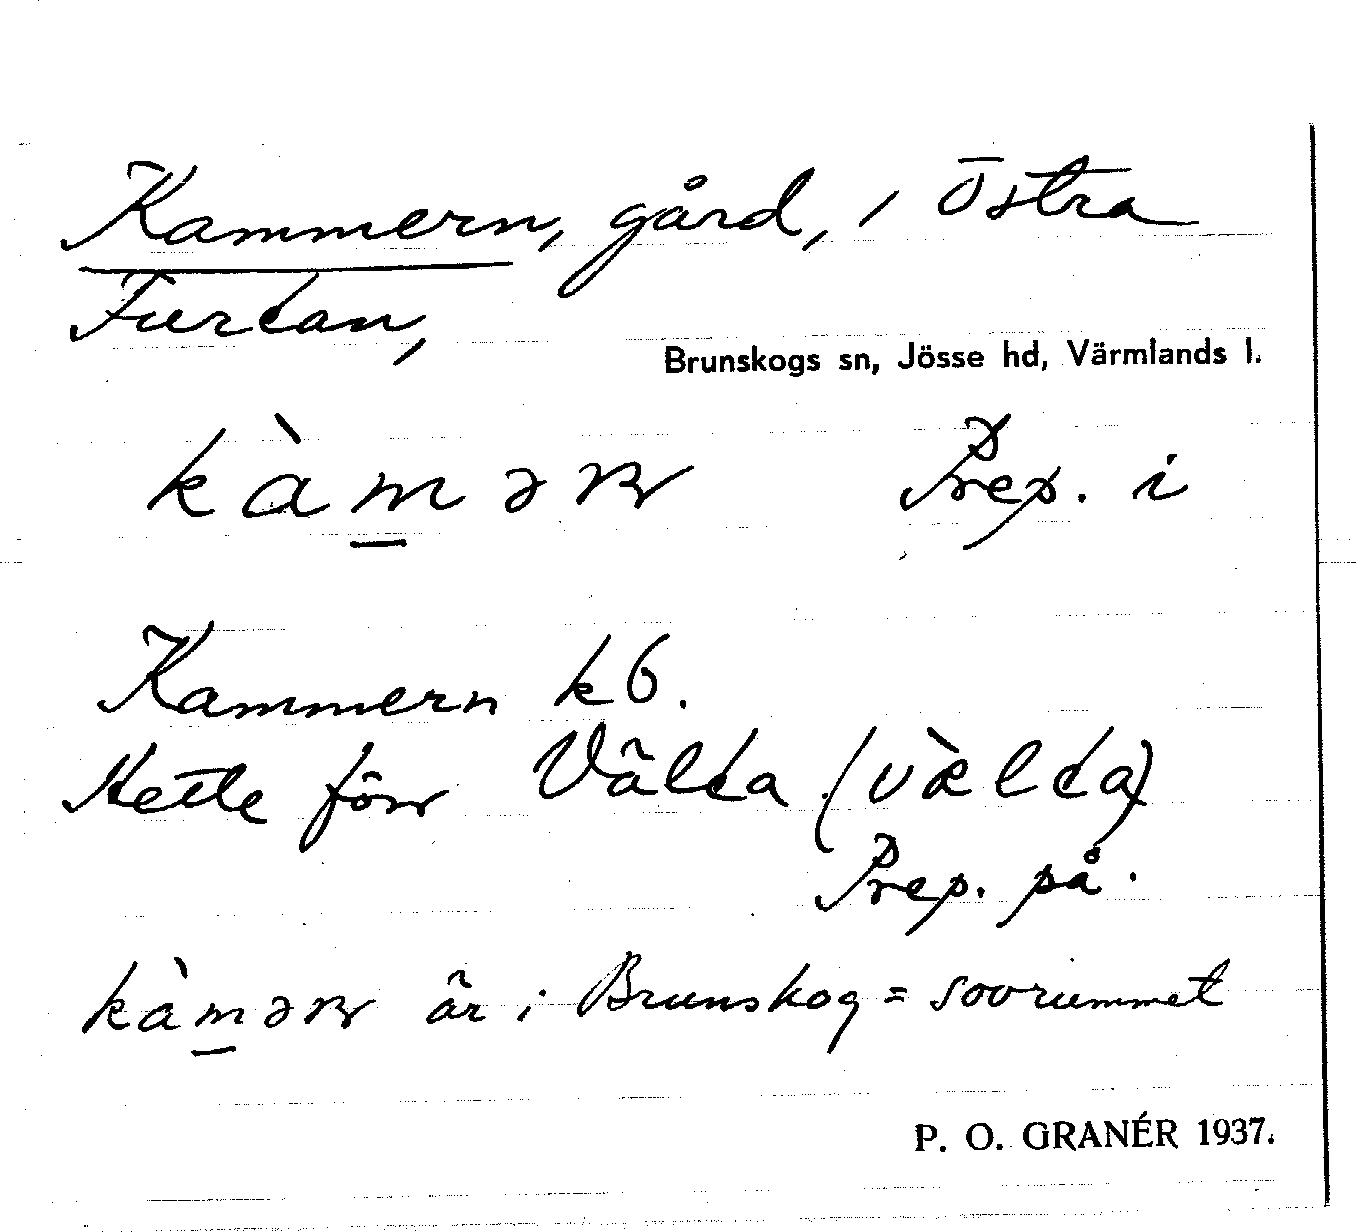 Kammern, gård, i Östra
Furtan,
Brunskogs sn, Jösse hd, Värmlands l.
kàm̲ər Prep. i
Kammern k6.
Hette förr Vålda (vælda)
Prep. på.
kàm̲ər är i Brunskog = sovrummet
P. O. GRANÉR 1937.